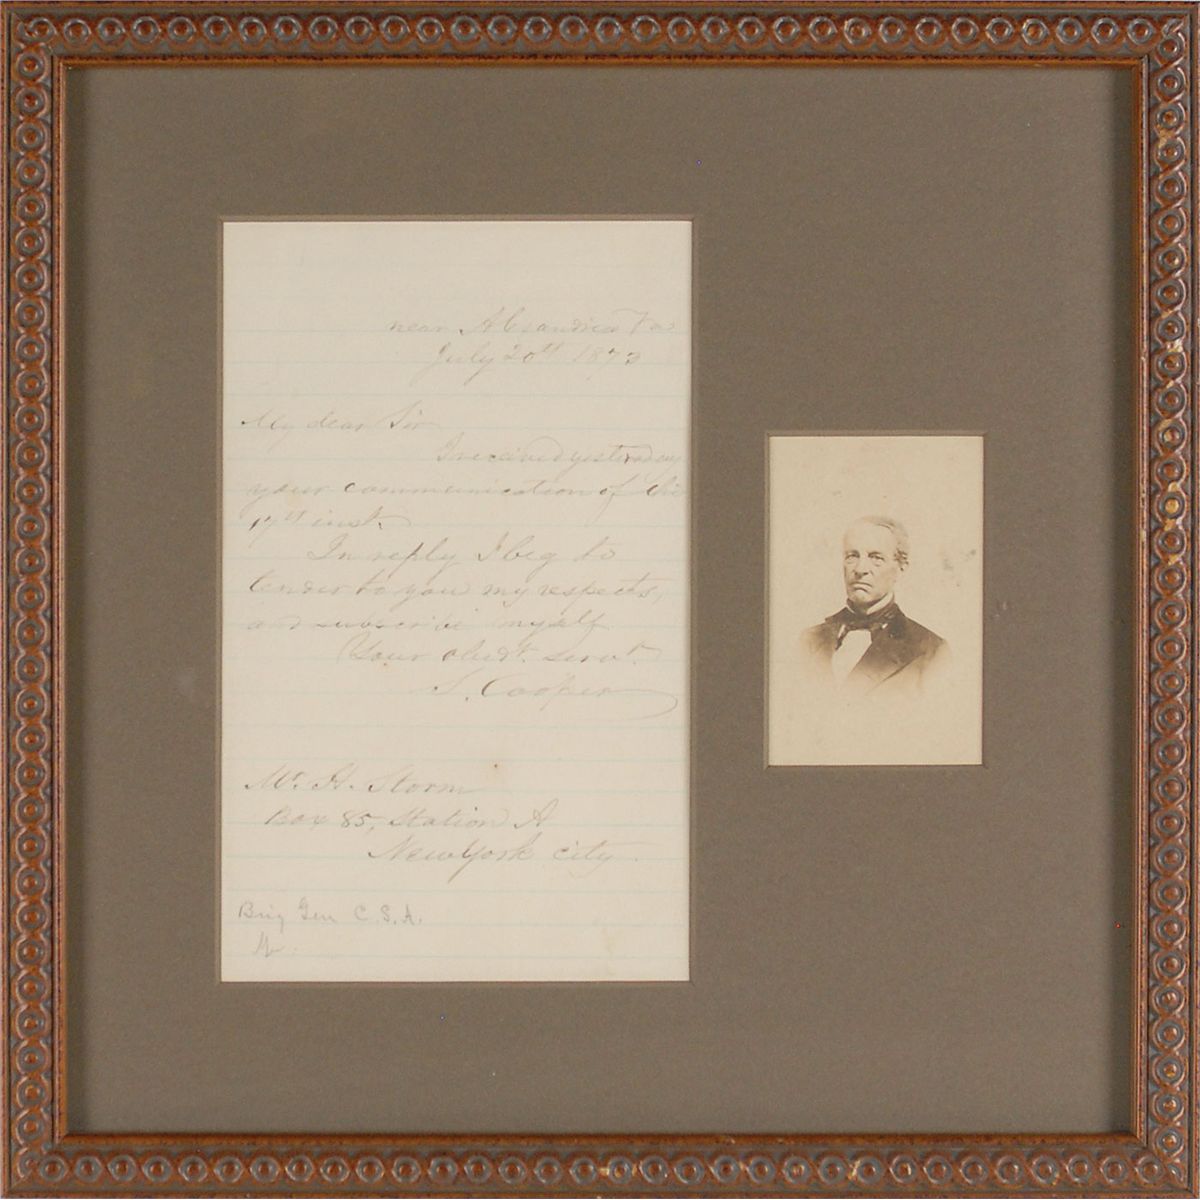 near Alexandria Va
July 20th 1873
My dear Sir
I received yesterday
your communication of the
17th inst.
In reply I beg to
tender to you my respects,
and subscribe myself
Your obedt. servt.
S. Cooper
Mr. H. Storm
Box 85, Station A
New York city.
Brig Gen C.S.A.